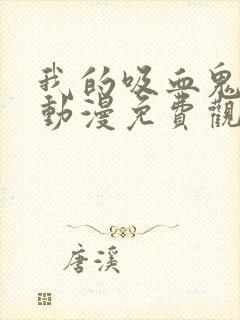 我的吸血鬼
動漫免費觀
唐溪